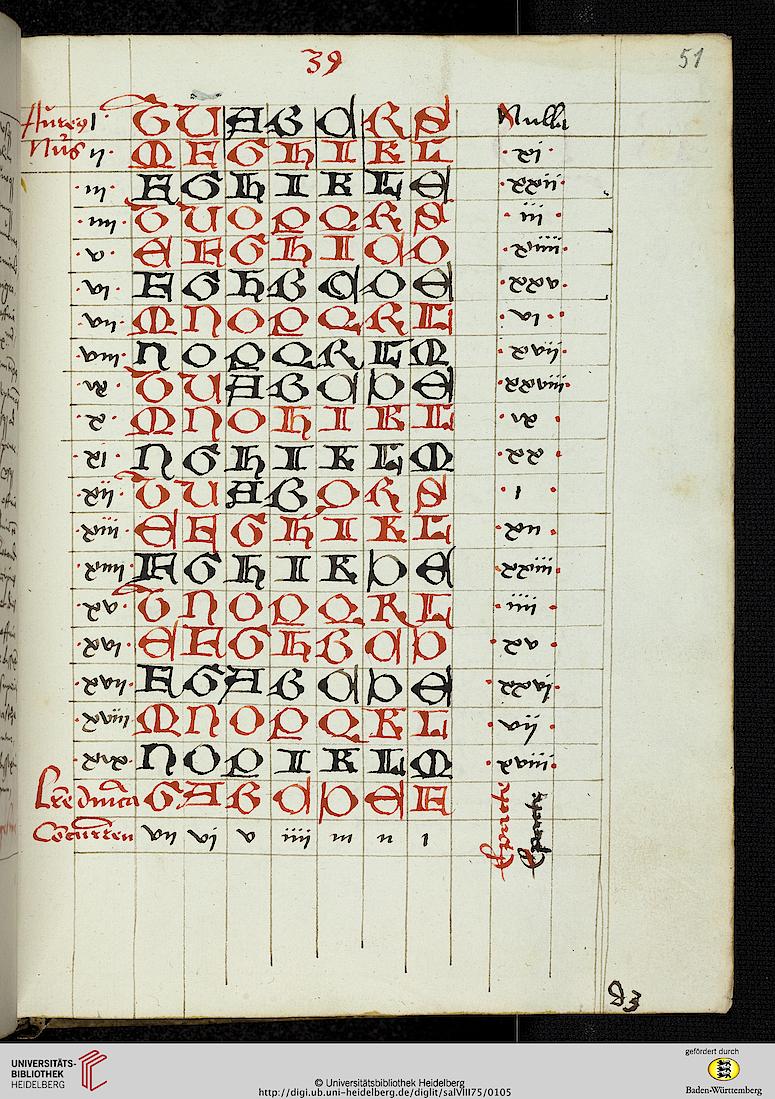 39
51
Aureus j T U A B C R S Nulla
Nus ij M F G H I K L xi
iij F G H I K L E xxii
iiij T U O P Q R S iii
v E F G H I C D xiiii
vi F G H B C D E xxv
vij M N O P Q R L vi
viij N O P Q R L M xvii
ix T U A B C D E xxviii
x M N O H I K L ix
xi N G H I K L M xx
xij T U A B Q R S i
xiii E F G H I K L xii
xiiij F G H I K D E xxiii
xv T N O P Q R L iiii
xvi E F G H B C D xv
xvij F G A B C D E xxvi
xviij M N O P Q K L vii
xix N O P I K L M xviii
G A B C D E F
vii vi v iiii iii ii i
Epacte
Epacte
UNIVERSITÄTS-
BIBLIOTHEK
HEIDELBERG
© Universitätsbibliothek Heidelberg
http://digi.ub.uni-heidelberg.de/diglit/salVIII75/0105
gefördert durch
Baden-Württemberg